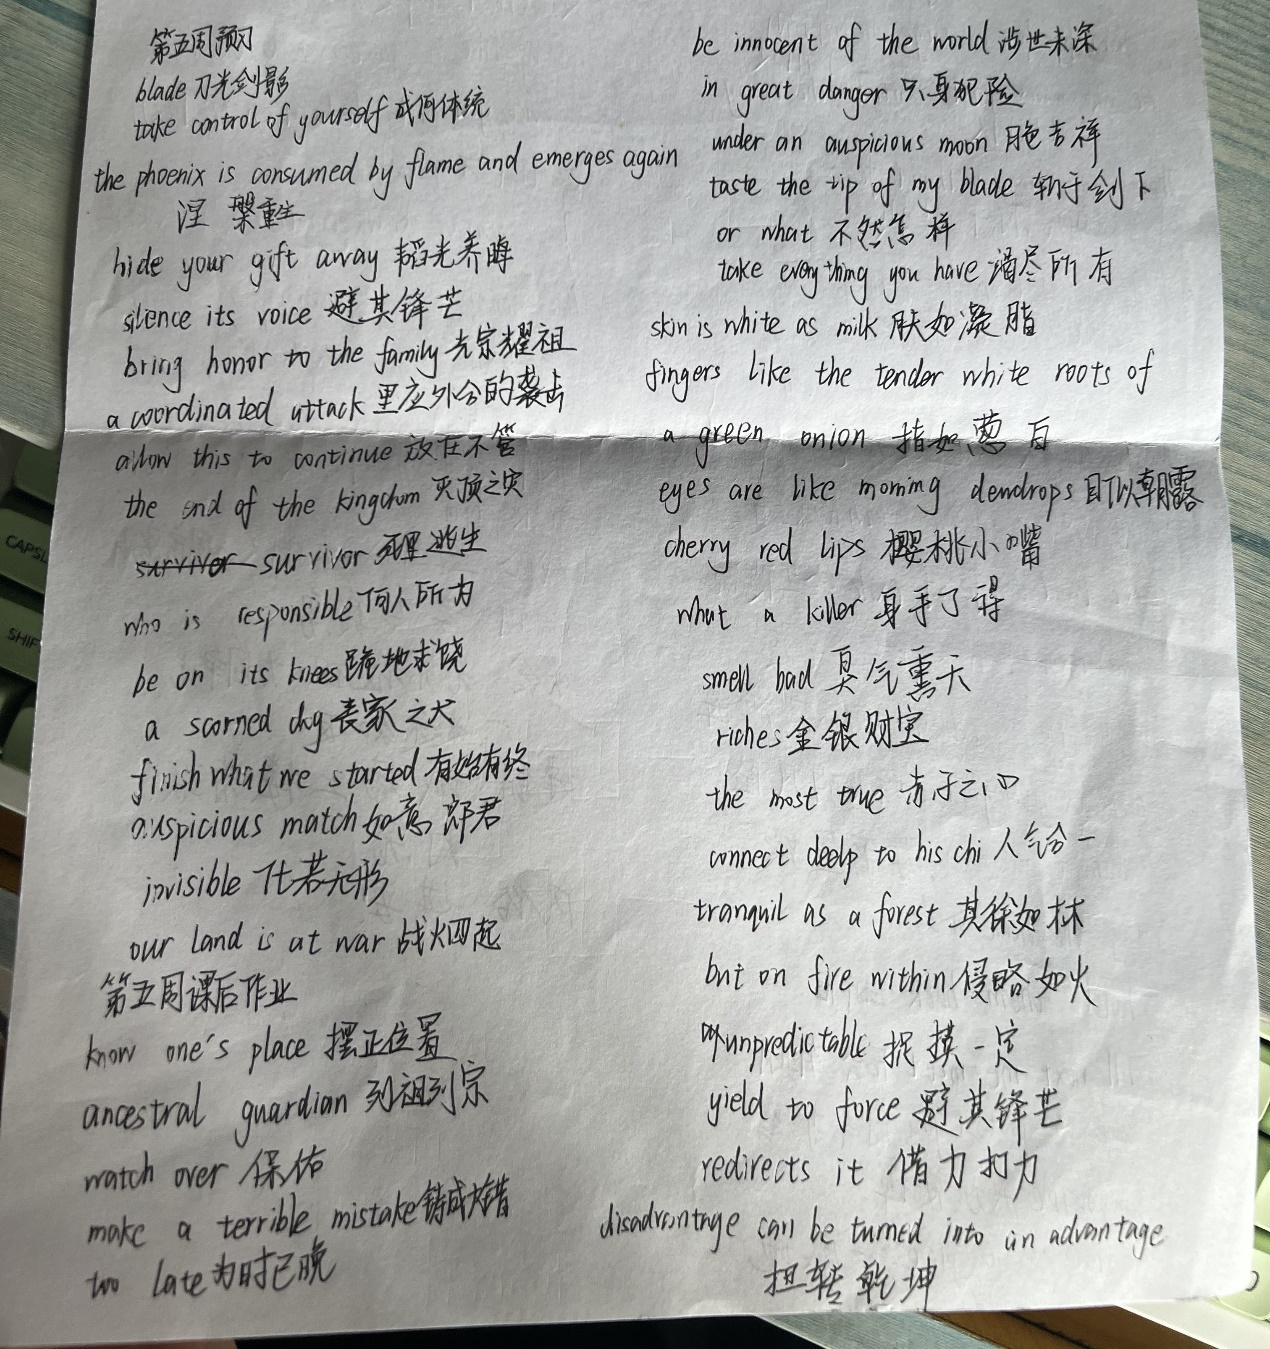 第五周预习
blade 刀光剑影
take control of yourself 成何体统
the phoenix is consumed by flame and emerges again
涅槃重生
hide your gift away 韬光养晦
silence its voice 避其锋芒
bring honor to the family 光宗耀祖
a coordinated attack 里应外合的袭击
allow this to continue 放任不管
the end of the kingdom 灭顶之灾
survivor 死里逃生
who is responsible 何人所为
be on its knees 跪地求饶
a scorned dog 丧家之犬
finish what we started 有始有终
auspicious match 如意郎君
invisible 仕若无形
our land is at war 战火四起
第五周课后作业
know one's place 摆正位置
ancestral guardian 列祖列宗
watch over 保佑
make a terrible mistake 铸成大错
too late 为时已晚
be innocent of the world 涉世未深
in great danger 只身犯险
under an auspicious moon 月色吉祥
taste the tip of my blade 斩于剑下
or what 不然怎样
take everything you have 竭尽所有
skin is white as milk 肤如凝脂
fingers like the tender white roots of
a green onion 指如葱白
eyes are like morning dewdrops 目似朝露
cherry red lips 樱桃小嘴
what a killer 身手了得
smell bad 臭气熏天
riches 金银财宝
the most true 赤子之心
connect deelp to his chi 人气合一
tranquil as a forest 其徐如林
but on fire within 侵略如火
unpredictable 捉摸一定
yield to force 避其锋芒
redirects it 借力打力
disadvantage can be turned into an advantage
扭转乾坤
CAPSL
SHIF